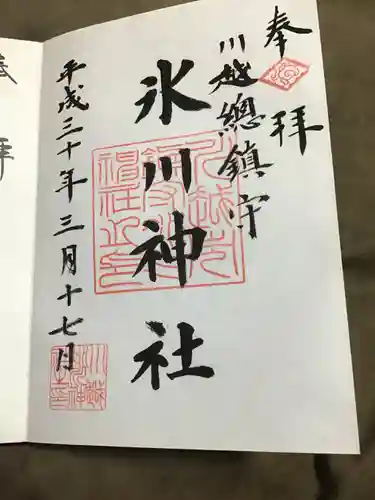 奉拝
川越總鎮守
氷川神社
平成三十年三月十七日